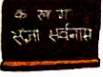 क ख ग
संज्ञा सर्वनाम